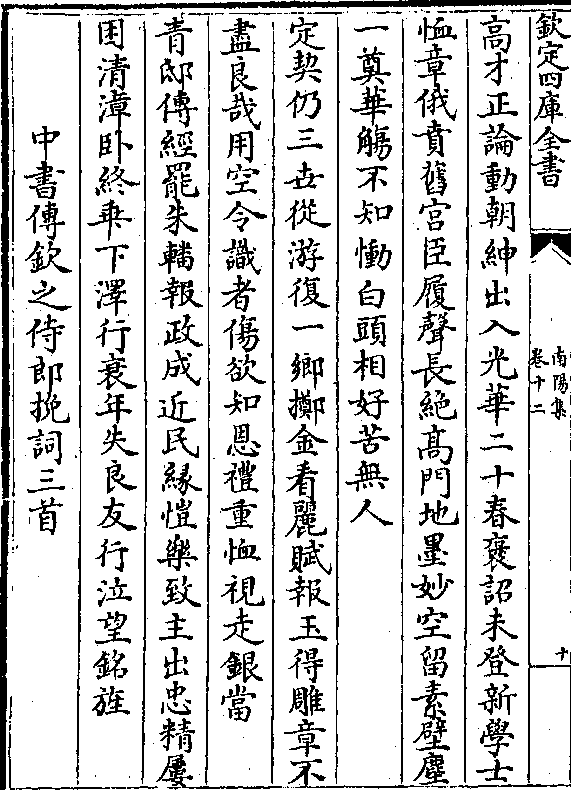 欽定四庫全書
南陽集
卷十二
十
高才正論動朝紳出入光華二十春褒詔未登新學士
恤章俄賁舊宫臣履聲長絶高門地墨妙空留素壁塵
一奠華觴不知慟白頭相好苦無人
定契仍三世從游復一鄉擲金看麗賦報玉得雕章不
盡良哉用空令識者傷欲知恩禮重恤視走銀當
青邸傅經罷朱轓報政成近民緣愷樂致主出忠精屢
困清漳卧終乗下澤行衰年失良友行泣望銘旌
中書傅欽之侍郎挽詞三首